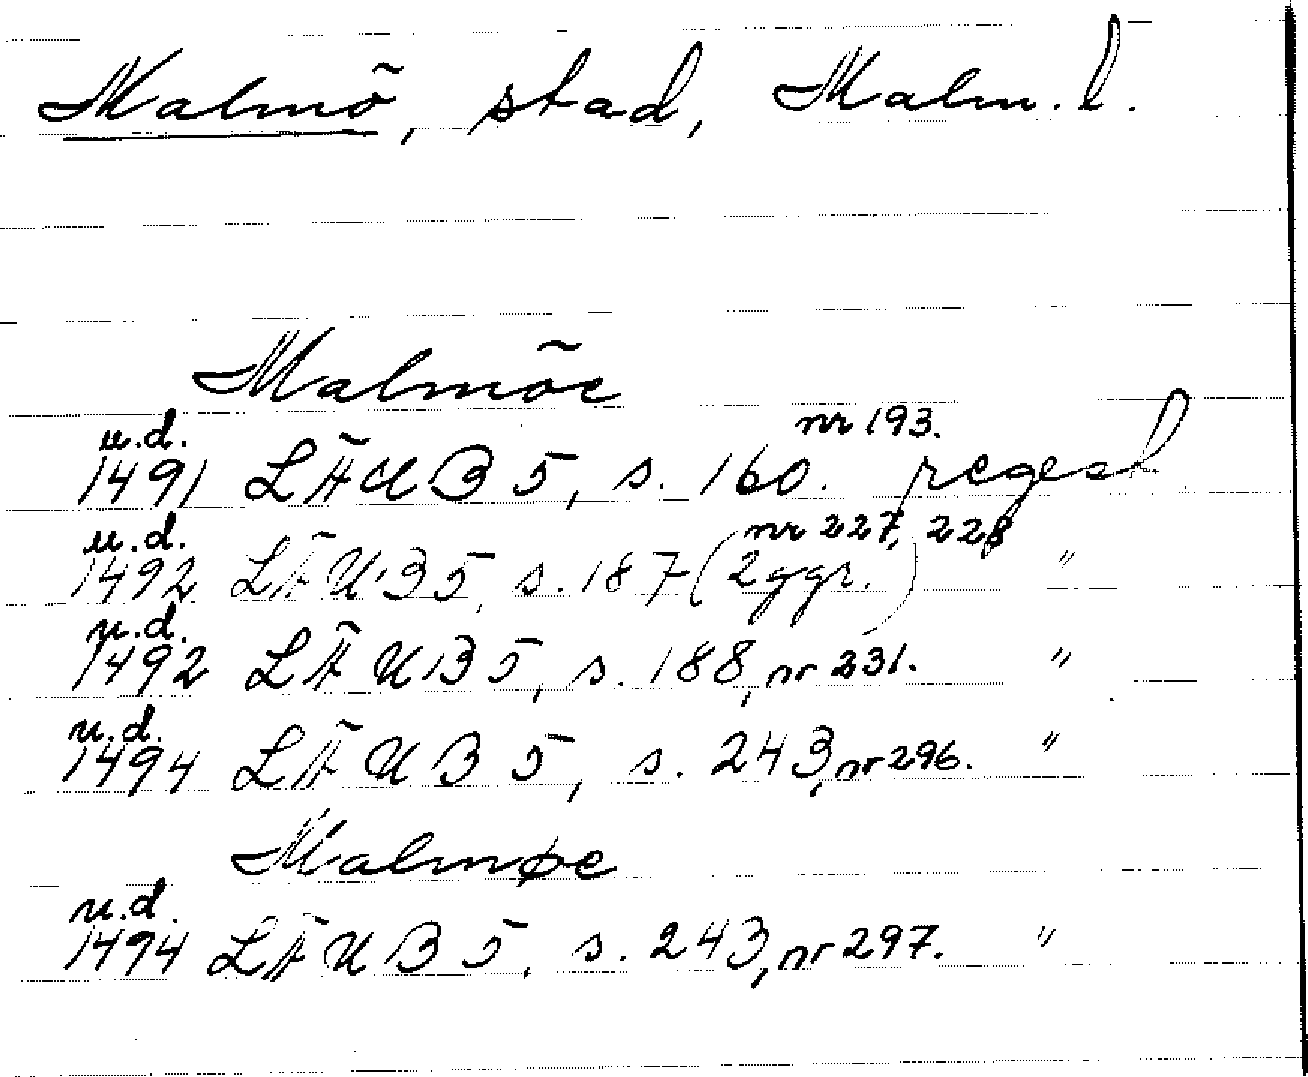 Malmö, stad, Malm. l.
Malmöe
u.d. nr 193.
1491 LÄUB 5, s. 160. regest
u.d. nr 227, 228
1492 LÄUB 5, s. 187 (2 ggr.) "
u.d.
1492 LÄUB 5, s. 188, nr 231. "
u.d.
1494 LÄUB 5, s. 243, nr 296. "
Malmøe
u.d.
1494 LÄUB 5, s. 243, nr 297. "